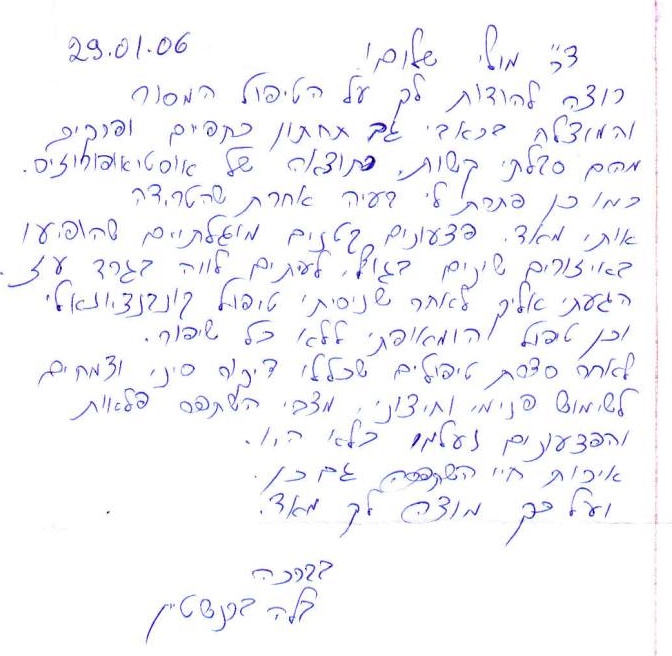 29.01.06
ד"ר מולי שלום!
רוצה להודות לך על הטיפול המסור
והמוצלח בכאבי גב תחתון כתפיים ופרקים
מהם סבלתי קשות, כתוצאה של אוסטיאופורוזיס.
כמו כן פתרת לי בעיה אחרת שהטרידה
אותי מאד. פצעונים קטנים מוגלתיים שהופיעו
באיזורים שונים בגופי, לעתים לווה בגרד עז.
הגעתי אליך לאחר שניסיתי טיפול קונבנציונאלי
וכן טפול הומאופתי ללא כל שיפור.
לאחר סדרת טיפולים שכללו דיקור סיני וצמחים
לשימוש פנימי וחיצוני, מצבי השתפר פלאות
והפצעונים נעלמו כלא היו.
איכות חיי השתפרה גם כן.
ועל כך מודה לך מאד.
בברכה
בלה